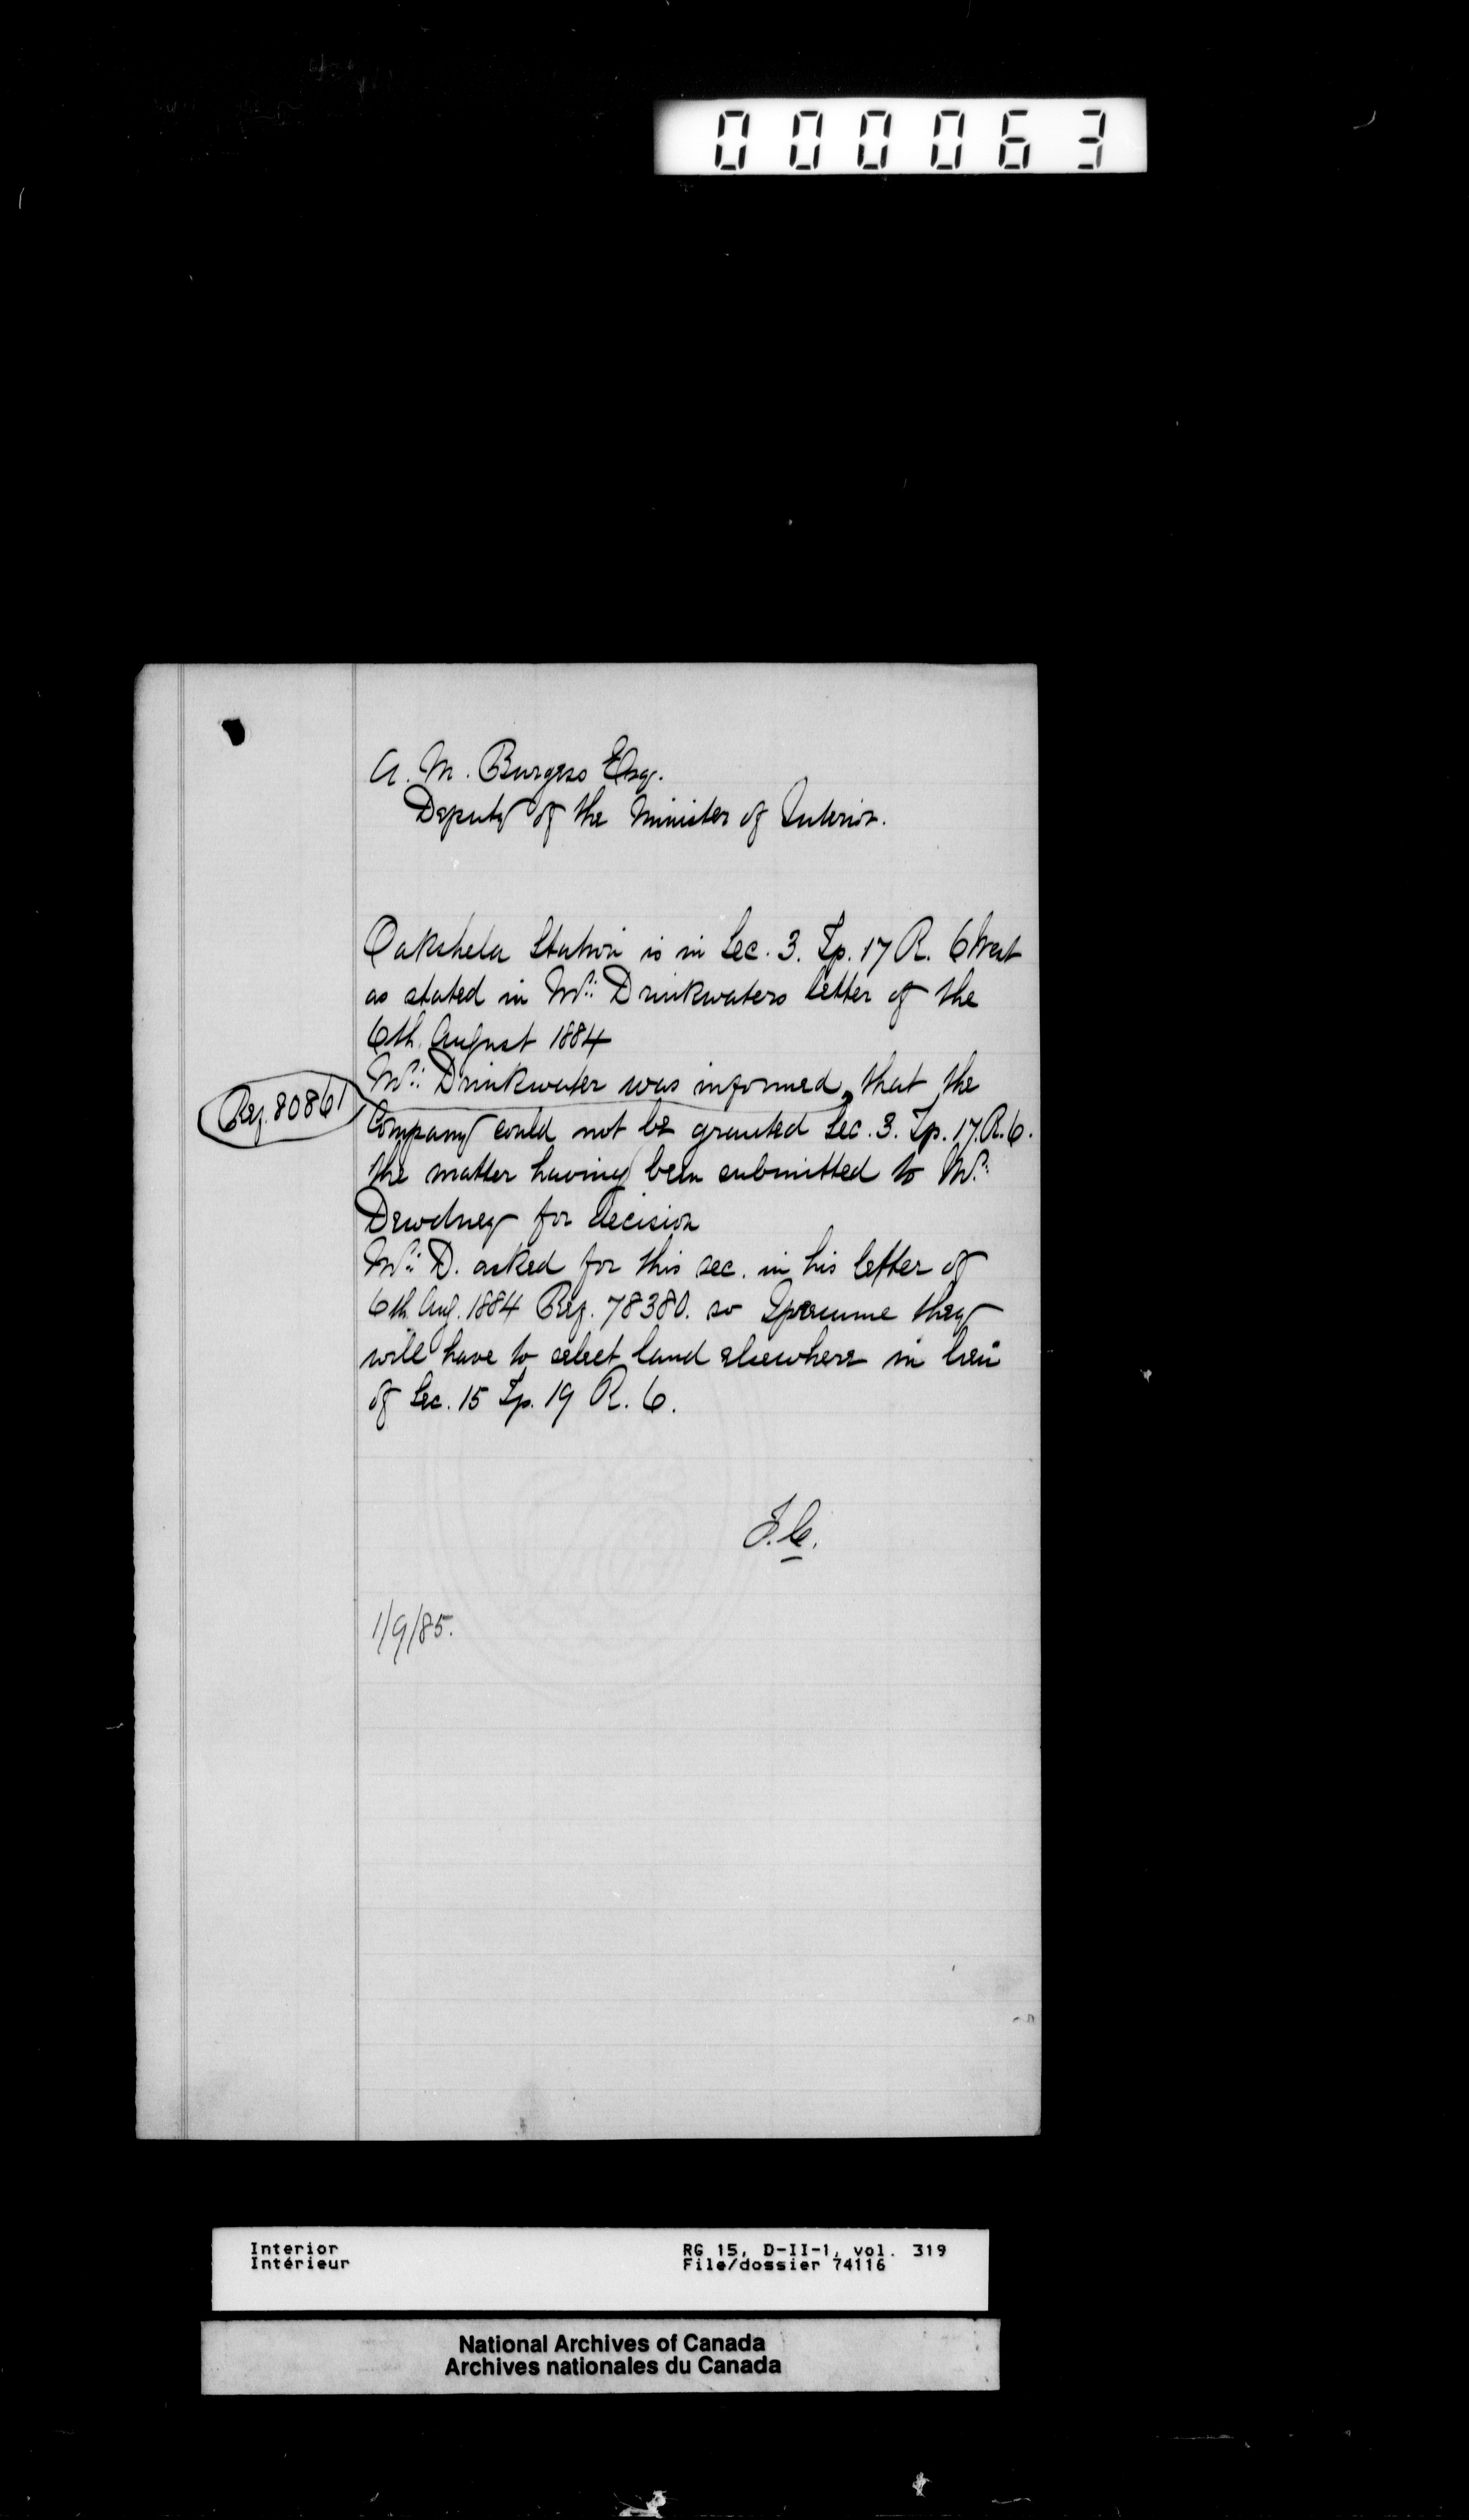 000063
A. M. Burgess Esq.
Deputy of the Minister of Interior.
Oakshela Station is in Sec. 3. Tp. 17 R. 6 West
as stated in Mr. Drinkwaters letter of the
6th. August 1884
Mr. Drinkwater was informed, that the
Ref. 80861
Company could not be granted Sec. 3. Tp. 17. R. 6.
the matter having been submitted to Mr.
Dewdney for decision
Mr. D. asked for this sec. in his letter of
6th Aug. 1884 Ref. 78380. so I presume they
will have to select land elsewhere in lieu
of Sec. 15 Tp. 19 R. 6.
1/9/85.
Interior
Intérieur
RG 15, D-II-1, vol. 319
File/dossier 74116
National Archives of Canada
Archives nationales du Canada